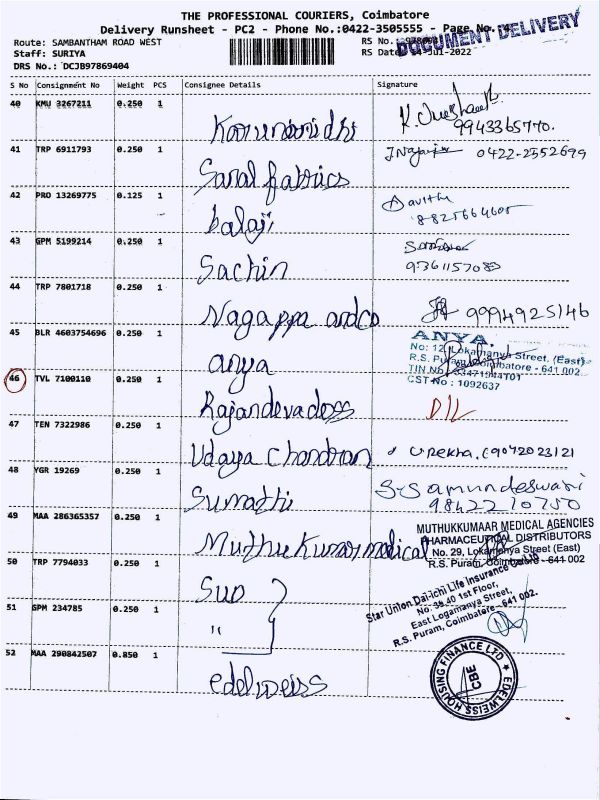 THE PROFESSIONAL COURIERS, Coimbatore
Delivery Runsheet - PC2 - Phone No.:0422-3505555 - Page No.
DOCUMENT DELIVERY
Route: SAMBANTHAM ROAD WEST
RS No.:
Staff: SURIYA
RS Date: -Jul-2022
DRS No.: DCJB97869404
S No Consignment No Weight PCS Consignee Details Signature
40 KMU 3267211 0.250 1
Karunanidhi
9943365770.
41 TRP 6911793 0.250 1
0422-2552699
Saral fabrics
42 PRO 13269775 0.125 1
balaji
8825664605
43 GPM 5199214 0.250 1
Sachin
9361157083
44 TRP 7801718 0.250 1
Nagappa andco
9994925146
45 BLR 4603754696 0.250 1
anya
ANYA.
No: 12, Lokamanya Street, (East)
R.S. Puram, Coimbatore - 641 002
TIN No
CST No : 1092637
46 TVL 7100110 0.250 1
Rajandevadoss
D/L
47 TEN 7322986 0.250 1
Udaya Chandran
U rekha. 9042023121
48 YGR 19269 0.250 1
Sumathi
S. Samundeswari
9842210750
49 MAA 286365357 0.250 1
Muthukumar medical
MUTHUKKUMAAR MEDICAL AGENCIES
PHARMACEUTICAL DISTRIBUTORS
No. 29, Lokamanya Street (East)
R.S. Puram, Coimbatore - 641 002
50 TRP 7794033 0.250 1
Sud
Star Union Dai-ichi Life Insurance Co Ltd
No. 39,40 1st Floor,
East Logamanya Street,
R.S. Puram, Coimbatore - 641 002.
51 GPM 234785 0.250 1
"
52 MAA 290842507 0.850 1
edelweiss
EDELWEISS HOUSING FINANCE LTD
CBE